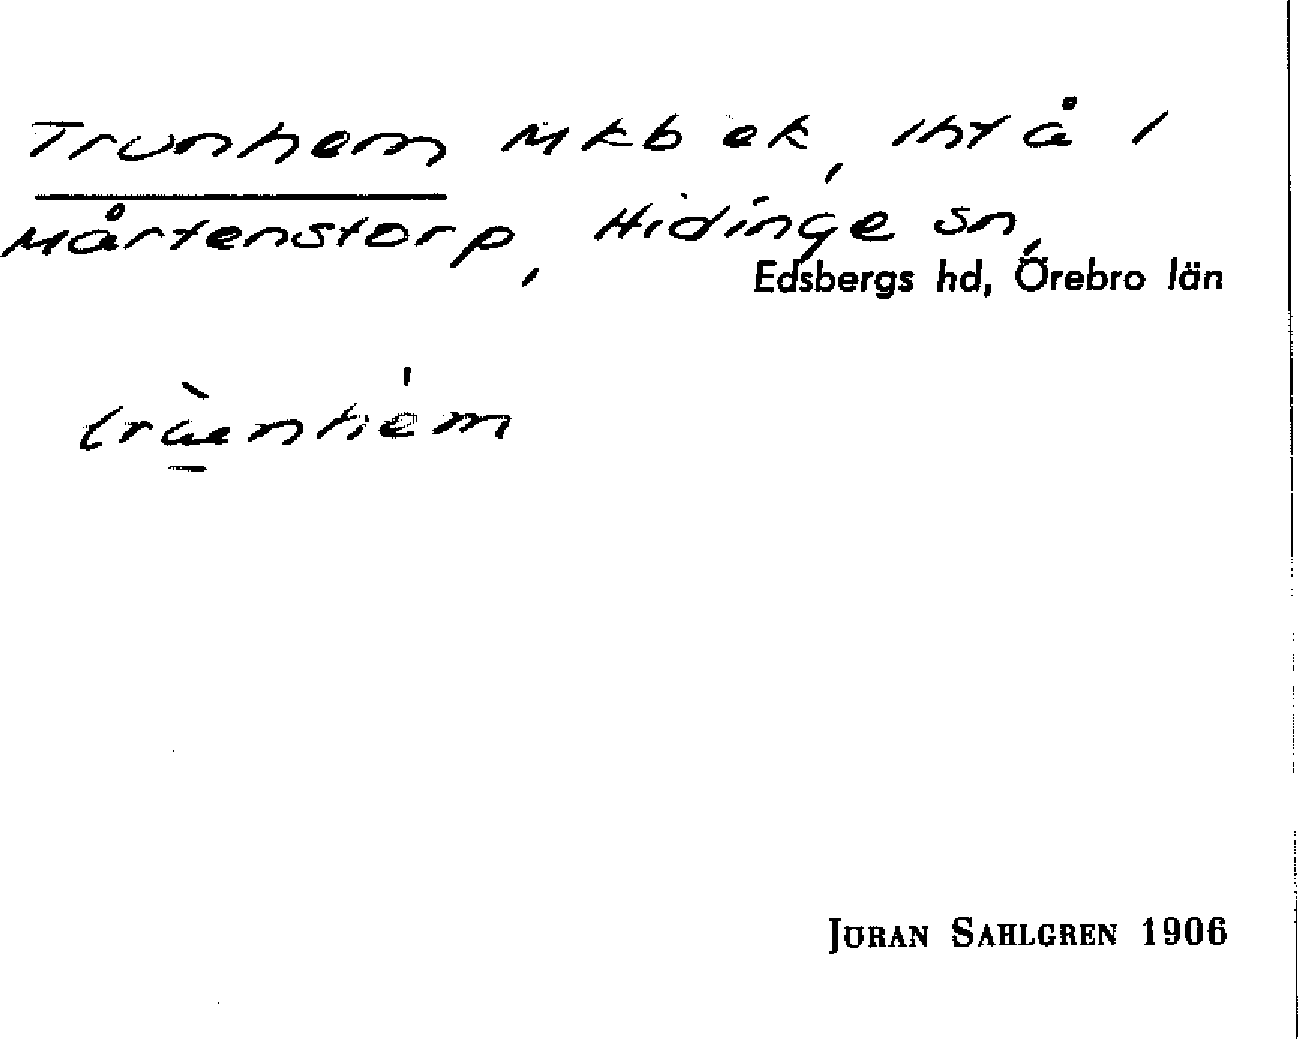 Trunhem Mkb ek, lht å i
Mårtenstorp, Hidinge sn,
Edsbergs hd, Örebro län
JÖRAN SAHLGREN 1906